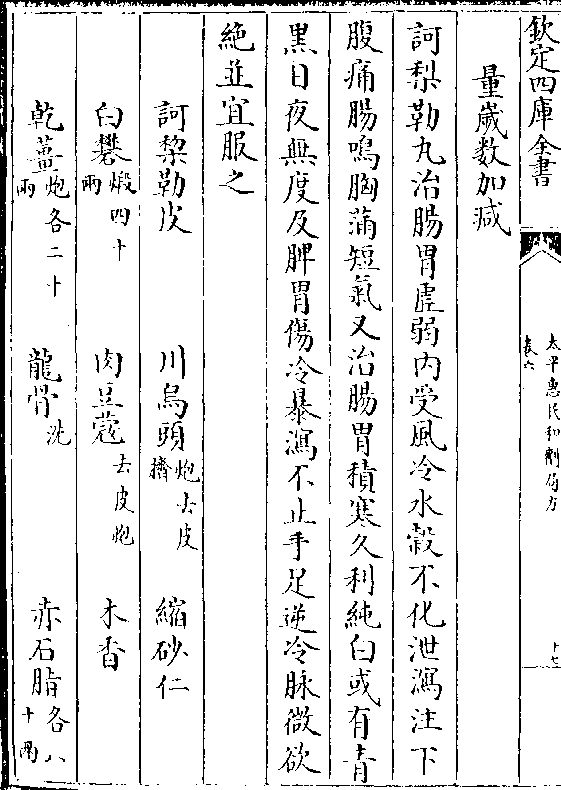 欽定四庫全書
太平惠民和劑局方
卷六
十七
量嵗數加減
訶梨勒丸治腸胃虛弱内受風冷水榖不化泄瀉注下
腹痛腸鳴胸滿短氣又治腸胃積寒久利純白或有青
黑日夜無度及脾胃傷冷暴瀉不止手足逆冷脉微欲
絶並宜服之
訶棃勒皮 川烏頭炮去皮臍 縮砂仁
白礬煅四十兩 肉豆蔻去皮炮 木香
乾薑炮各二十兩 龍骨洗 赤石脂各八十兩